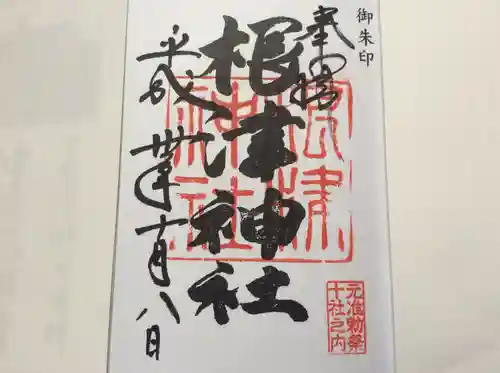 御朱印
奉拝
根津神社
根津神社
平成卅年十一月八日
元准勅祭
十社之内